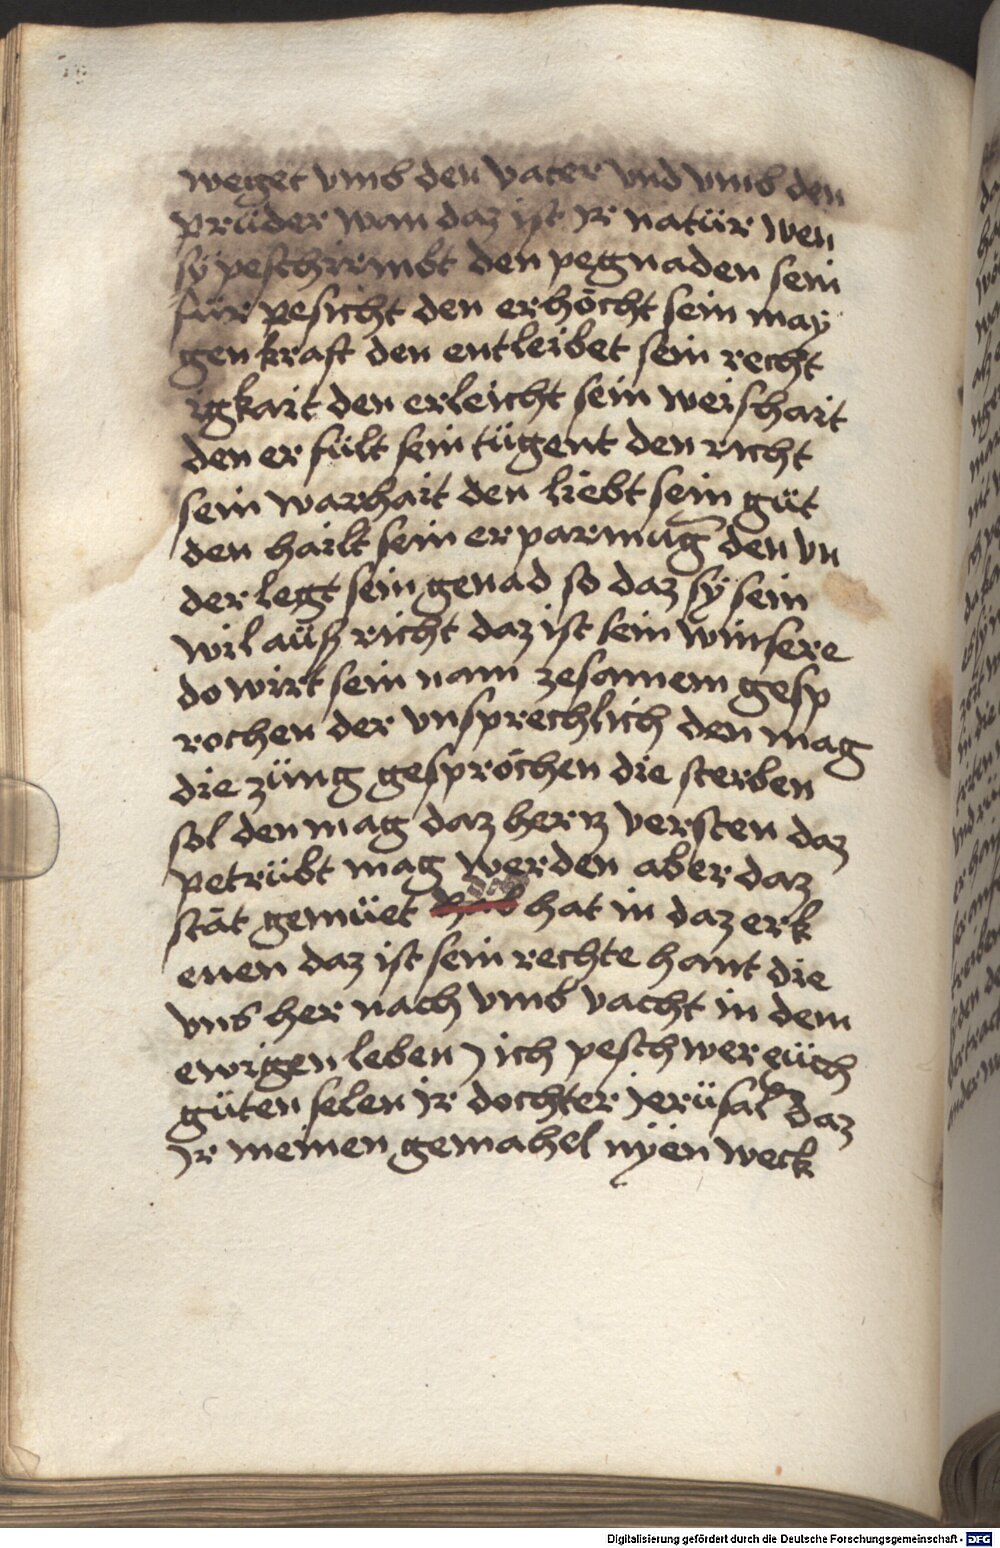 weget vmb den vater vnd vmb den
prüder wan daz ist jr natür wen
sÿ peschirmbt den pegnaden sein
für gesicht den erhöcht sein may
gen kraft den entleibet sein recht
igkait den erleicht sein weishait
den er fült sein tügent den richt
sein warhait den liebt sein güt
den hailt sein er parmūg den vn
der legt sein genad so daz sÿ sein
wil aüß richt daz ist sein winsere
do wirt sein nam zesamem gesp
rochen der vnsprechlich den mag
die züng gespröchen die sterben
sol den mag daz hertz versten daz
petrübt mag werden aber daz
stät gemüet hat in daz erk
enen daz ist sein rechte hant die
vns her nach vmb vacht in dem
ewigen leben ich peschwer eüch
güten selen jr dochter jerüsal̄ daz
jr meinen gemahel nÿen weck
Digitalisierung gefördert durch die Deutsche Forschungsgemeinschaft - DFG